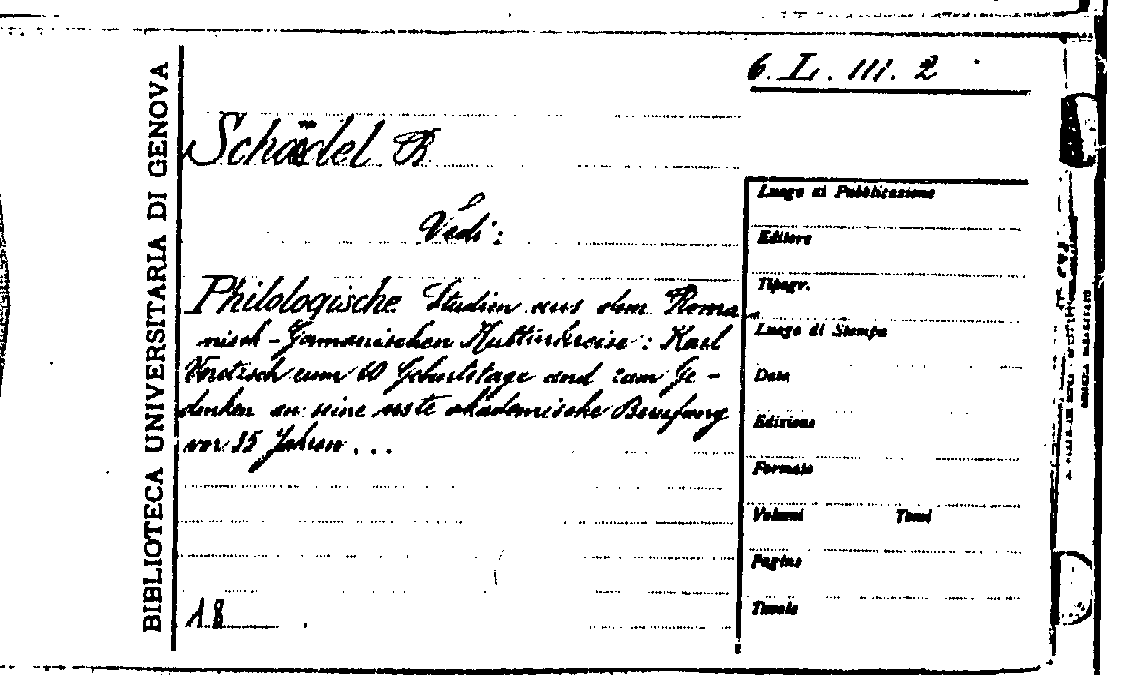 BIBLIOTECA UNIVERSITARIA DI GENOVA
6. L. III. 2
Schädel B
Vedi:
Philologische Studien aus dem Roma
nisch-Germanischen Kulturkreise: Karl
Voretzsch zum 60 Geburtstage und zum Ge-
denken an seine erste akademische Berufung
vor 35 Jahren...
18
Luogo di Pubblicazione
Editore
Tipogr.
Luogo di Stampa
Data
Edizione
Formato
Volumi Tomi
Pagine
Tavole